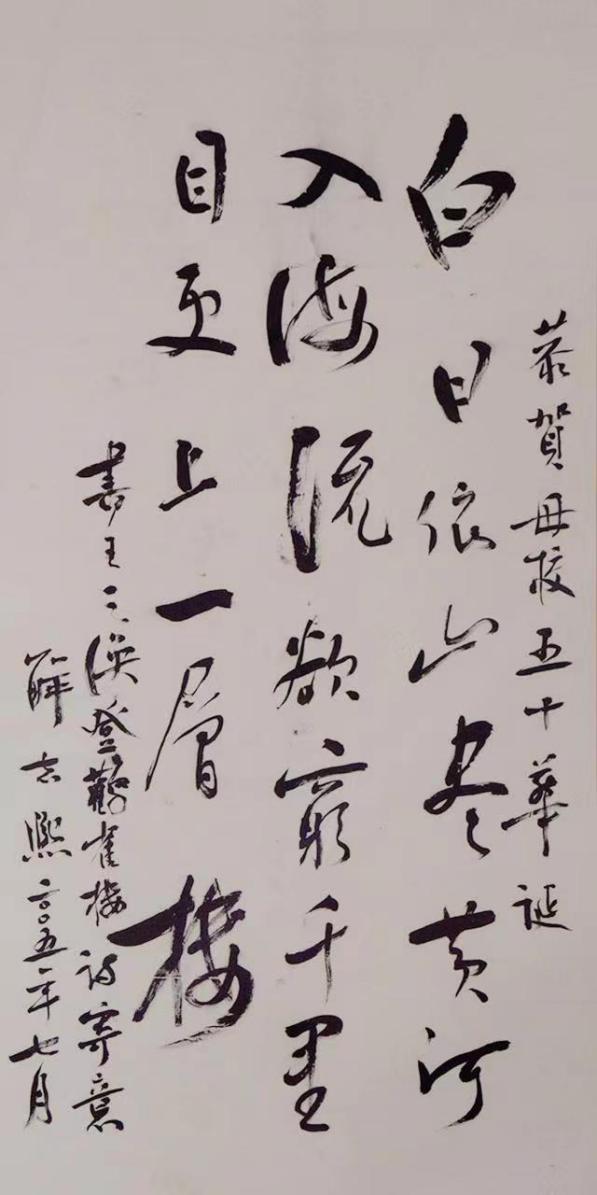 恭贺母校五十華诞
白日依山尽黄河
入海流欲窮千里
目更上一層楼
書王之渙登鹳雀楼詩寄意
解志熙二〇〇五年七月